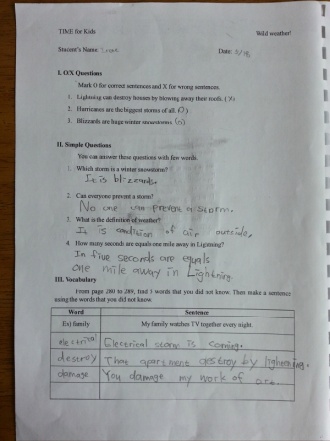 TIME for Kids Wild weather!
Student's Name: Date: 8/18
I. O/X Questions
Mark O for correct sentences and X for wrong sentences.
1. Lightning can destroy houses by blowing away their roofs. (X)
2. Hurricanes are the biggest storms of all. (O)
3. Blizzards are huge winter snowstorms. (O)
II. Simple Questions
You can answer these questions with few words.
1. Which storm is a winter snowstorm?
It is blizzards.
2. Can everyone prevent a storm?
No one can prevent a storm.
3. What is the definition of weather?
It is condition of air outside.
4. How many seconds are equals one mile away in Lightning?
In five seconds are equals
one mile away in Lightning.
III. Vocabulary
From page 280 to 289, find 5 words that you did not know. Then make a sentence
using the words that you did not know.
Word Sentence
Ex) family My family watches TV together every night.
electrical Electrical storm is coming.
destroy That apartment destroy by lightening.
damage You damage my work of art.